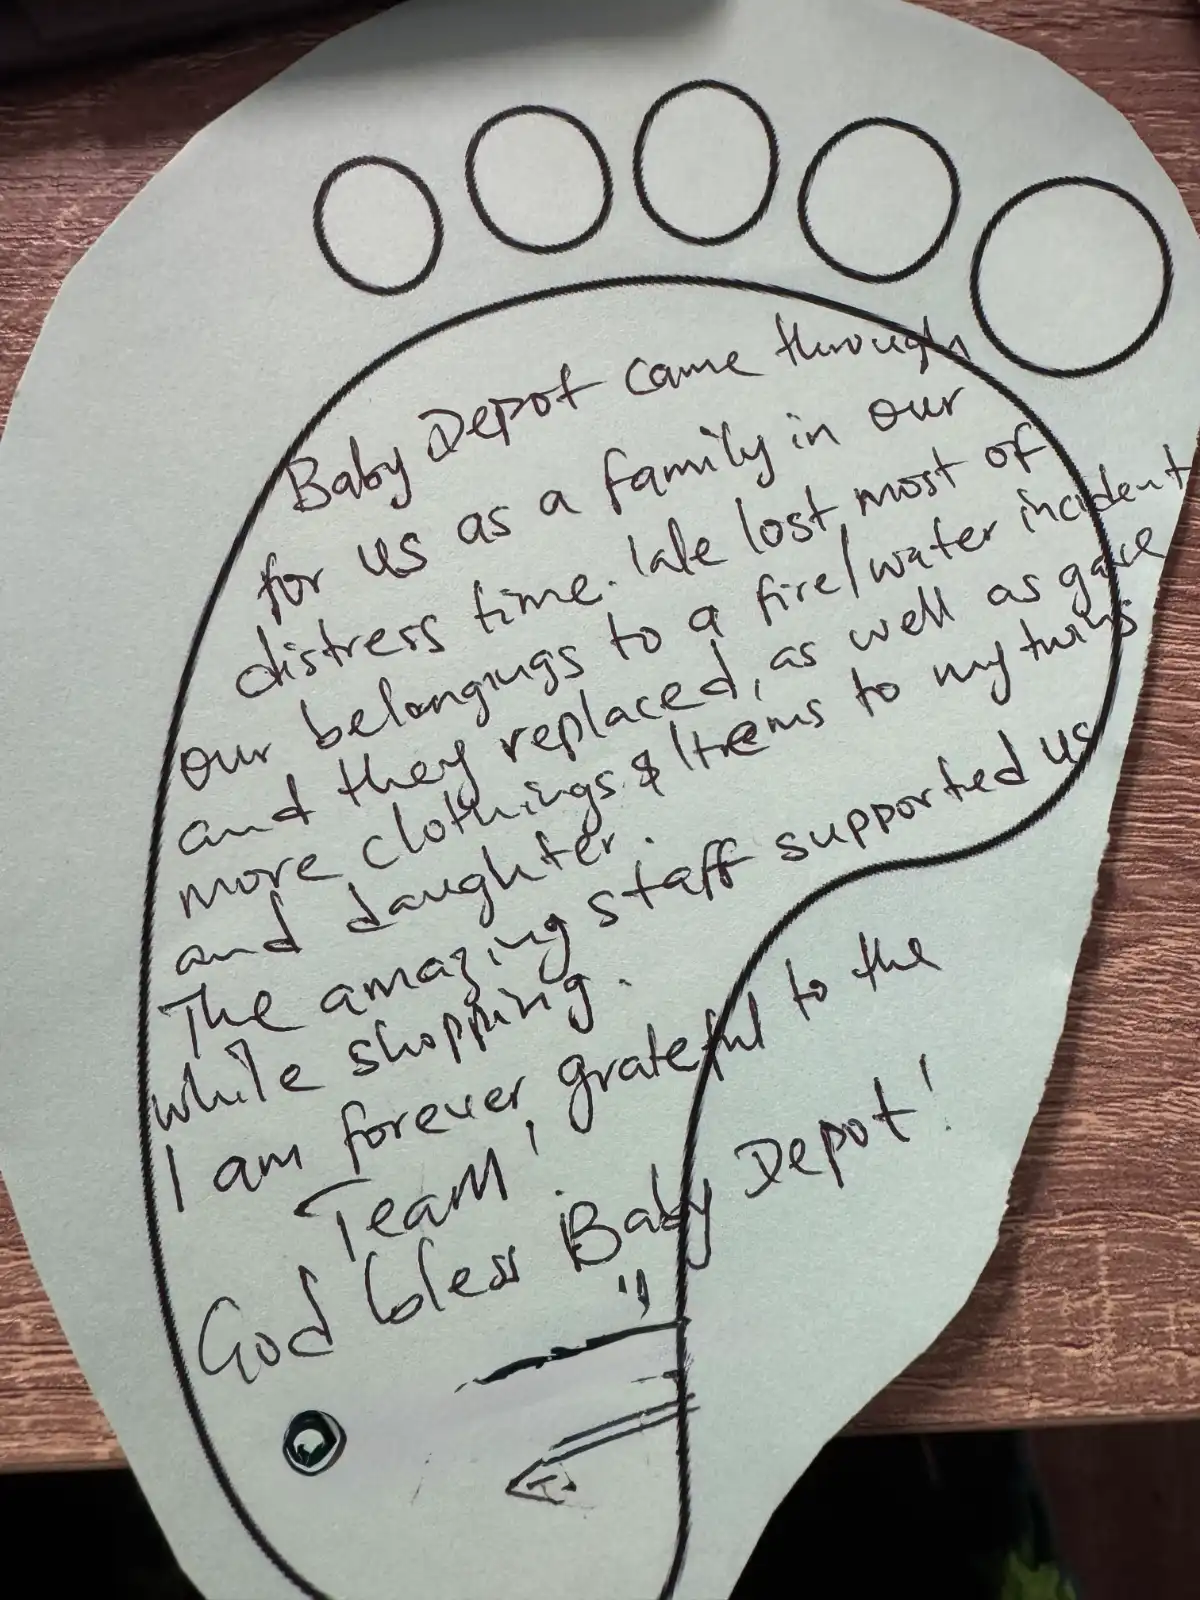 Baby Depot came through
for us as a family in our
distress time. We lost most of
our belongings to a fire/water incident
and they replaced, as well as gave
more clothings & Items to my twins
and daughter.
The amazing staff supported us
while shopping.
I am forever grateful to the
Team!
God bless Baby Depot!